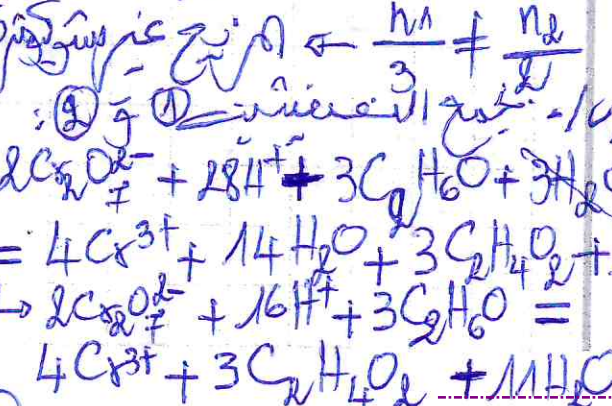 n1/3 ≠ n2/2 ← المزيج غير ستوكيو
- بجمع المعادلتين ① و ② :
2Cr₂O₇²⁻ + 28H⁺ + 3C₂H₆O + 3H₂O
= 4Cr³⁺ + 14H₂O + 3C₂H₄O₂ +
→ 2Cr₂O₇²⁻ + 16H⁺ + 3C₂H₆O =
4Cr³⁺ + 3C₂H₄O₂ + 11H₂O